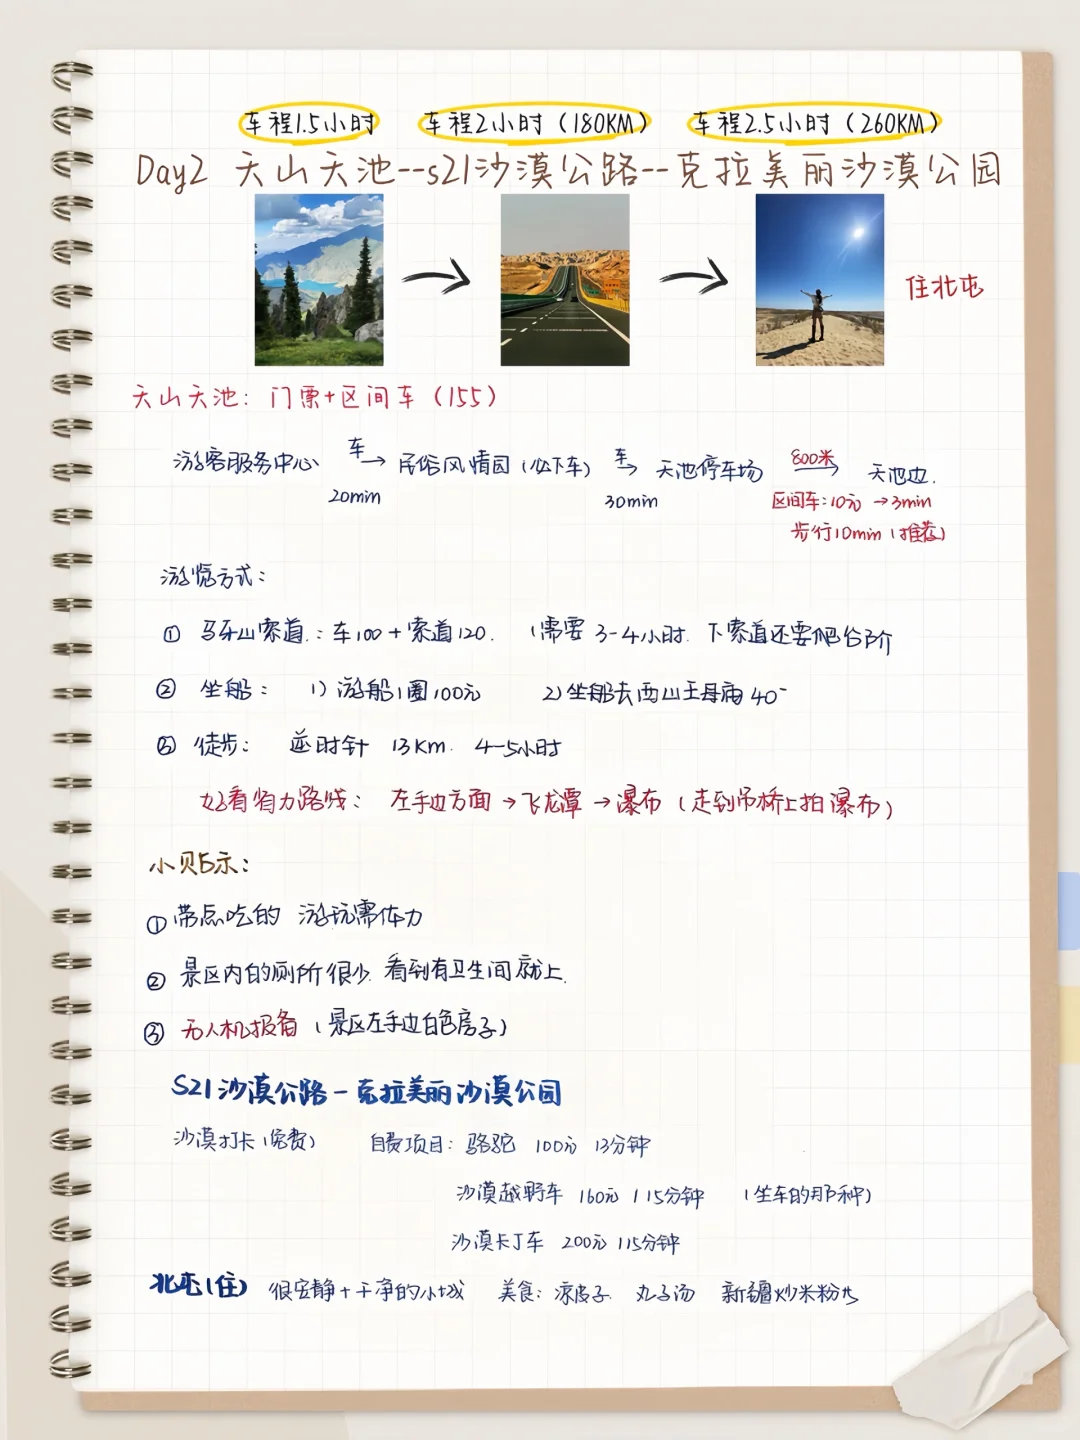 车程1.5小时 车程2小时（180KM） 车程2.5小时（260KM）
Day2 天山天池--s21沙漠公路--克拉美丽沙漠公园
住北屯
天山天池：门票+区间车（155）
游客服务中心 车→ 20min 民俗风情园（必下车） 车→ 30min 天池停车场 800米→ 天池边.
区间车:10元 →3min
步行10min（推荐）
游览方式：
① 马牙山索道.：车100+索道120. （需要 3-4小时. 下索道还要爬台阶
② 坐船： 1）游船1圈100元 2）坐船去西山王母庙40
③ 徒步： 逆时针 13Km. 4-5小时
好看省力路线： 左手边方面→飞龙潭→瀑布（走到吊桥上拍瀑布）
小贝占示：
①带点吃的 游玩需体力
② 景区内的厕所很少. 看到有卫生间就上.
③ 无人机报备（景区左手边白色房子）
S21沙漠公路-克拉美丽沙漠公园
沙漠打卡（免费） 自费项目：骆驼 100元 13分钟
沙漠越野车 160元 115分钟 （坐车的那种）
沙漠卡丁车 200元 115分钟
北屯（住） 很安静+干净的小城 美食：凉皮子. 丸子汤 新疆炒米粉